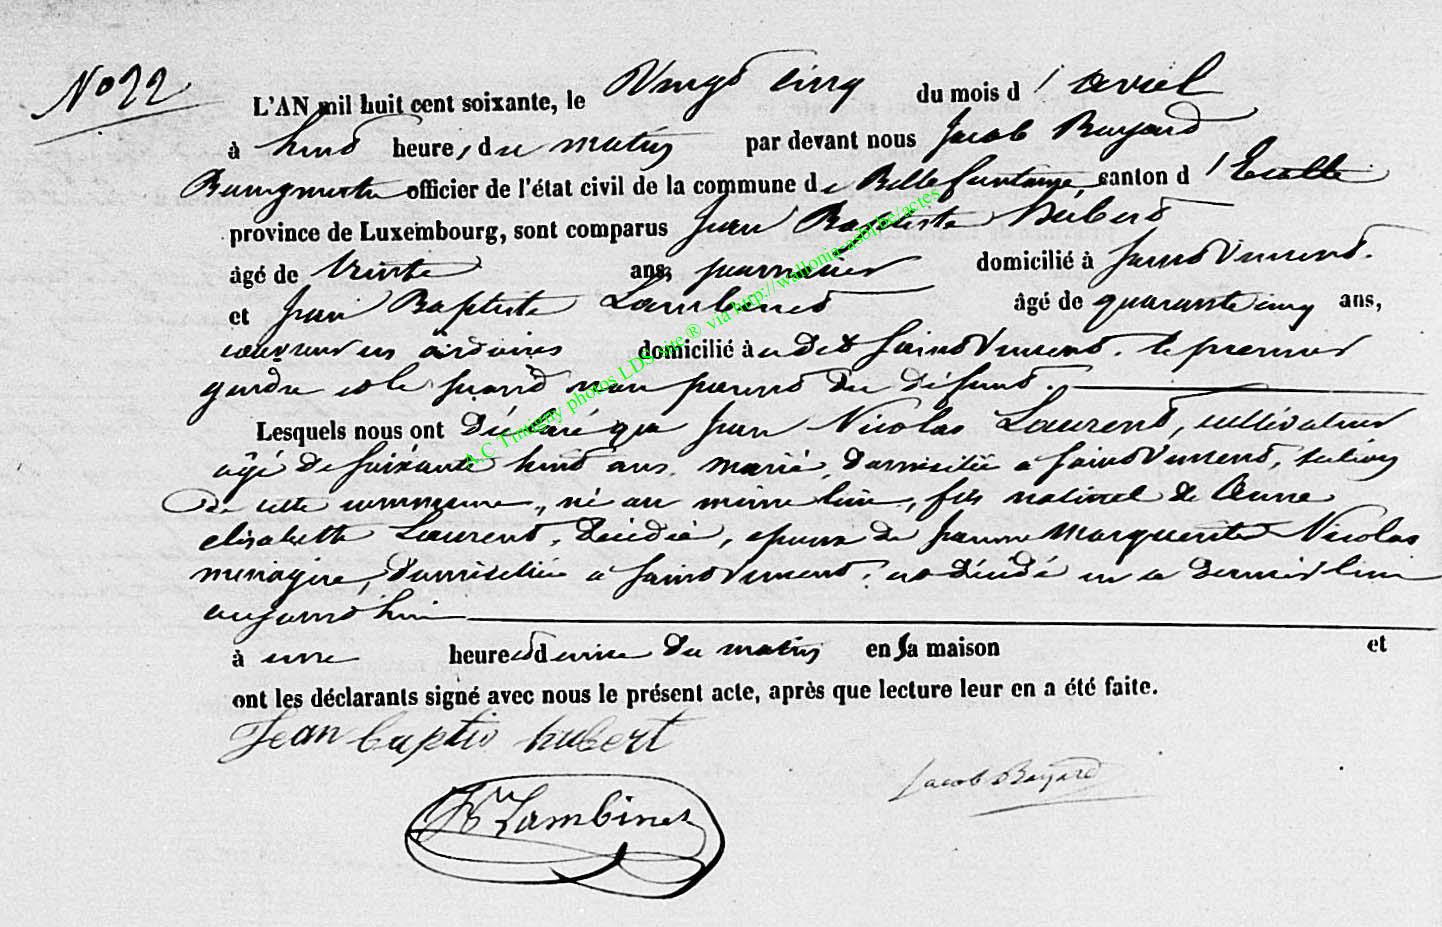 N° 22
L'AN mil huit cent soixante, le Vingt cinq du mois d'avril
à huit heures du matin par devant nous Jacob Bayard
Bourgmestre officier de l'état civil de la commune de Bellefontaine, canton d'Etalle
province de Luxembourg, sont comparus Jean Baptiste Hubert
âgé de trente ans, journalier domicilié à Saint Vincent.
et Jean Baptiste Lambinet âgé de quarante cinq ans,
couvreur en ardoises domicilié à dit Saint Vincent. le premier
gendre et le second non parent du défunt.
Lesquels nous ont déclaré que Jean Nicolas Laurent, cultivateur
âgé de soixante huit ans, marié, domicilié à Saint Vincent, section
de cette commune, né au même lieu, fils naturel de Anne
elisabeth Laurent, décédée, époux de Jeanne Marguerite Nicolas
ménagère, domiciliée à Saint Vincent, est décédé en ce dernier lieu
aujourd'hui
à une heure du matin en sa maison et
ont les déclarants signé avec nous le présent acte, après que lecture leur en a été faite.
Jean baptis hubert
Jacob Bayard
JB Lambinet
A.C Tintigny photos LDS site ® via http://wallonia-asbl.be/actes